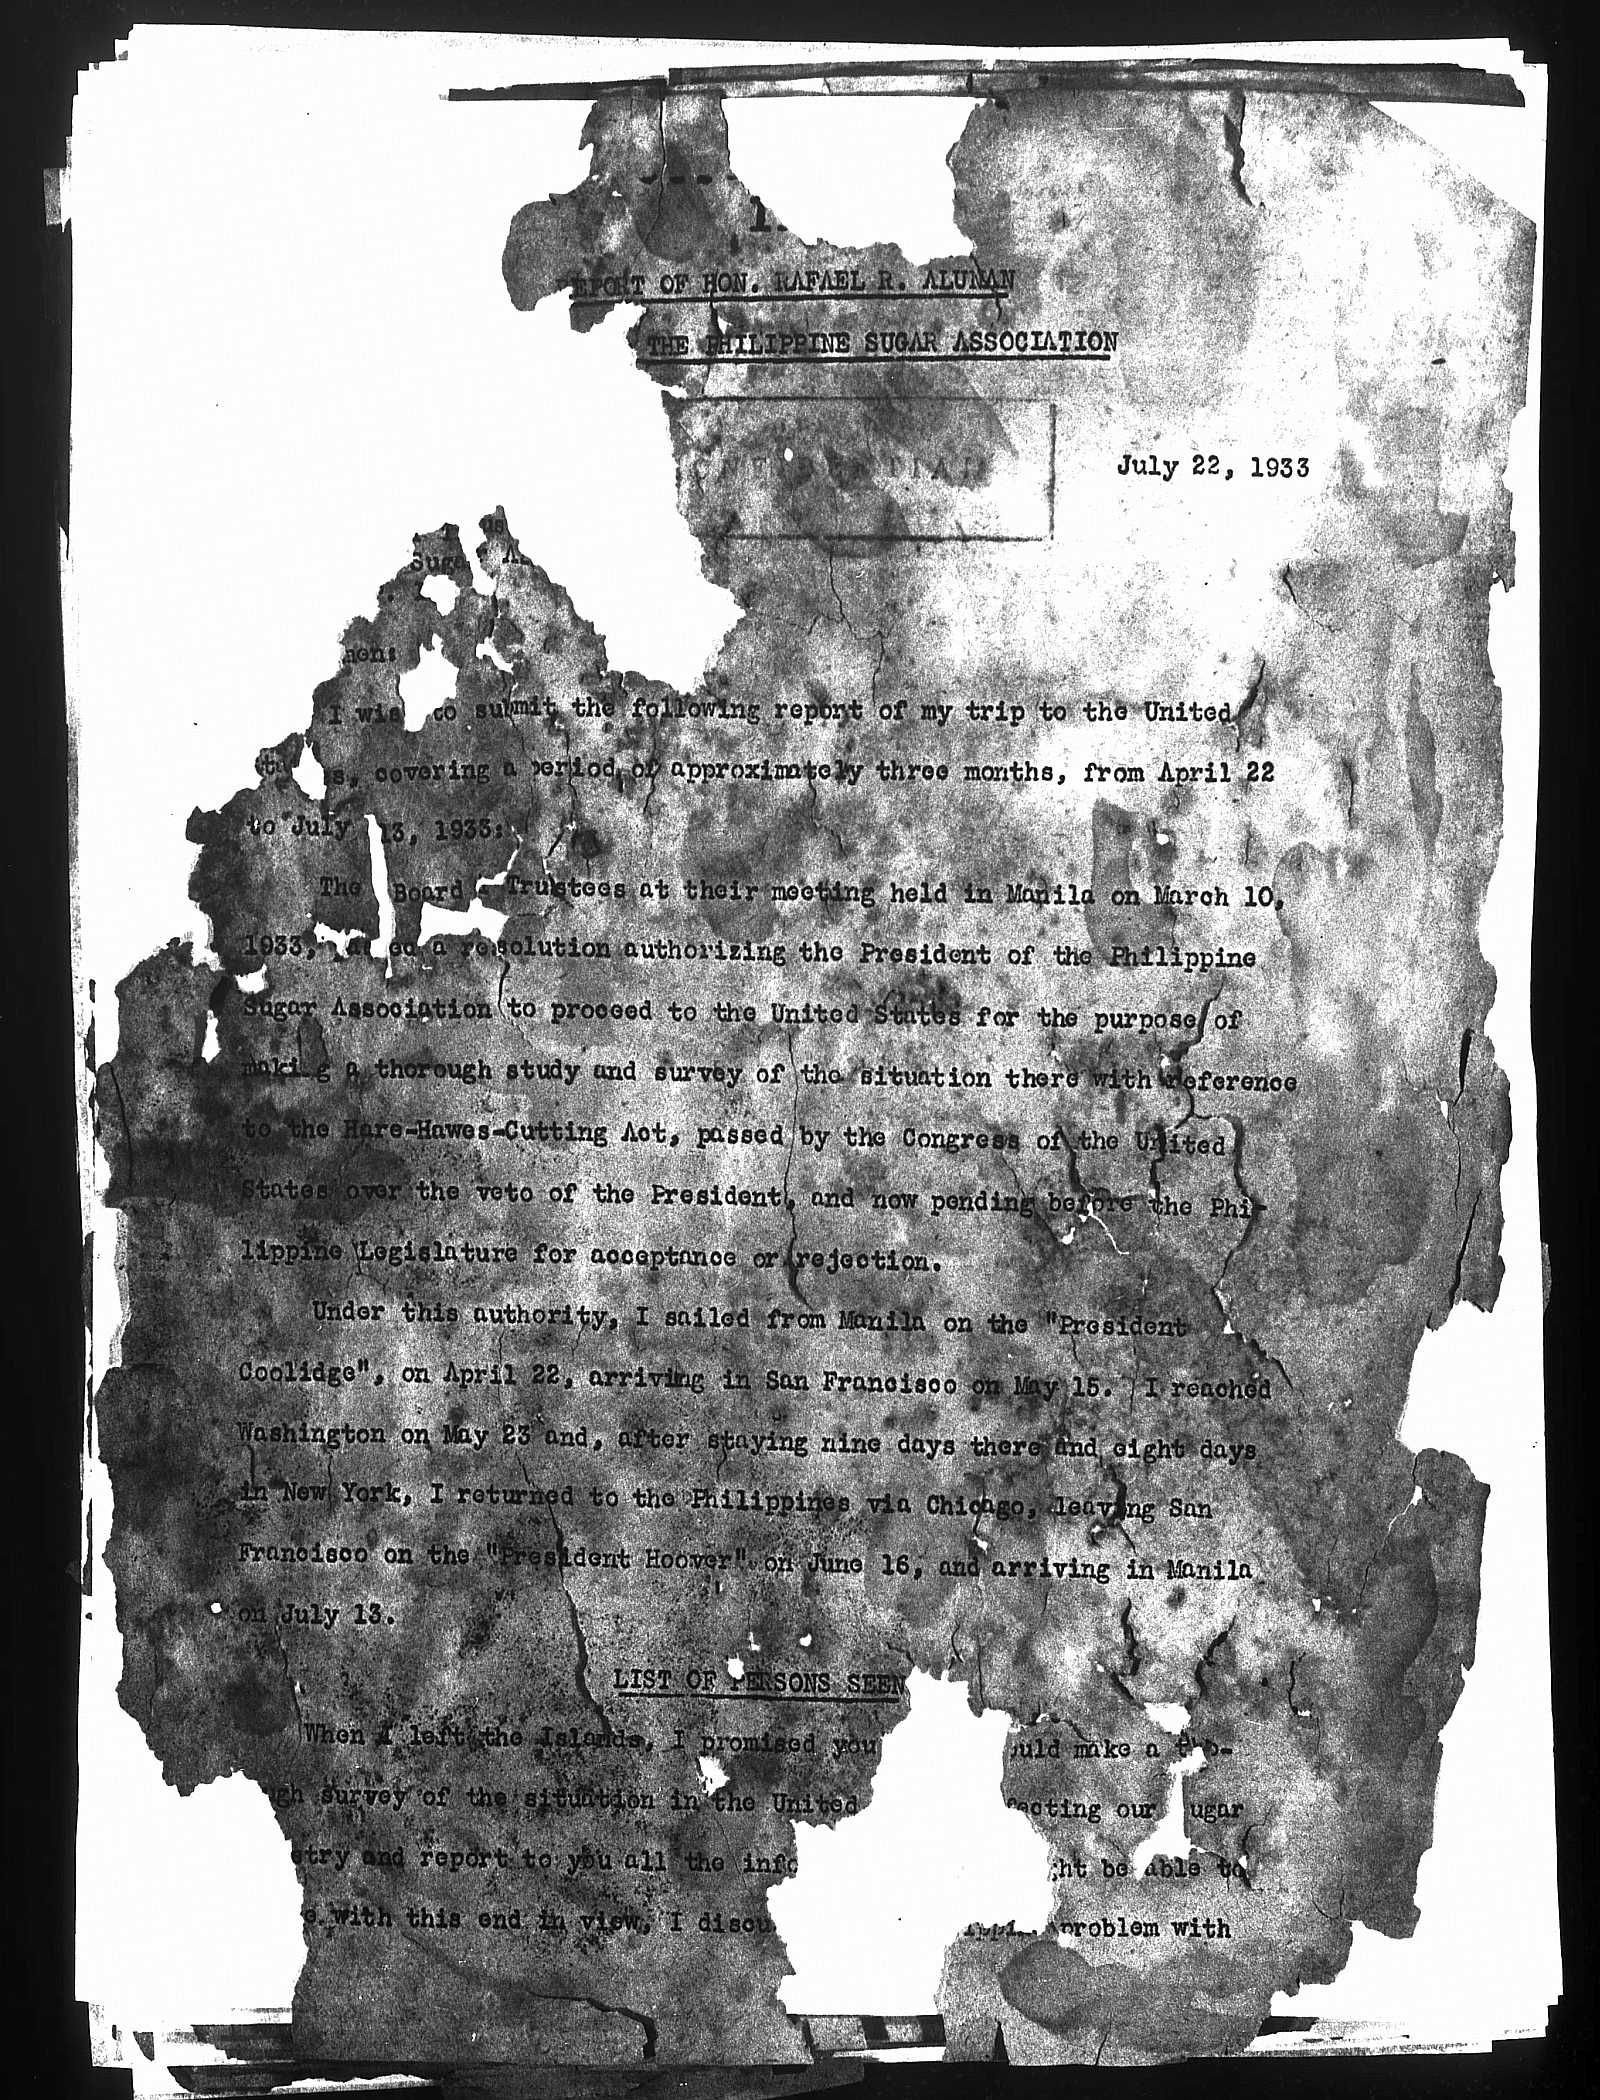 1.
REPORT OF HON. RAFAEL R. ALUNAN
THE PHILIPPINE SUGAR ASSOCIATION
July 22, 1933
I to submit the following report of my trip to the United
covering a period of approximately three months, from April 22
to July 13, 1933:
The Board Trustees at their meeting held in Manila on March 10,
1933, a resolution authorizing the President of the Philippine
Sugar Association to proceed to the United States for the purpose of
making a thorough study and survey of the situation there with reference
to the Hare-Hawes-Cutting Act, passed by the Congress of the United
States over the veto of the President, and now pending before the Phi-
lippine Legislature for acceptance or rejection.
Under this authority, I sailed from Manila on the "President
Coolidge", on April 22, arriving in San Francisco on May 15. I reached
Washington on May 23 and, after staying nine days there and eight days
in New York, I returned to the Philippines via Chicago, leaving San
Francisco on the "President Hoover" on June 16, and arriving in Manila
on July 13.
LIST OF PERSONS SEEN
When I left the Islands, I promised you make a
survey of the situation in the United our
and report to you all the be able to
with this end in view, I problem with